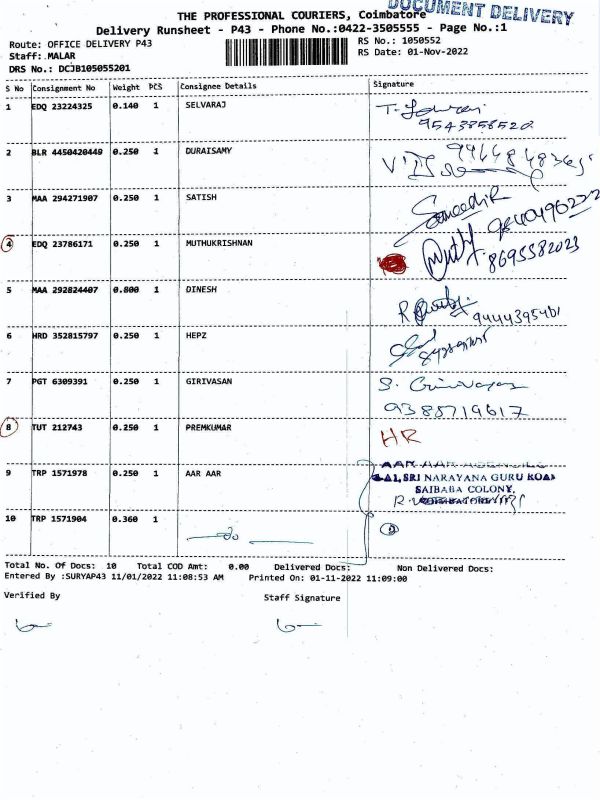 DOCUMENT DELIVERY
THE PROFESSIONAL COURIERS, Coimbatore
Delivery Runsheet - P43 - Phone No.:0422-3505555 - Page No.:1
Route: OFFICE DELIVERY P43 RS No.: 1050552
Staff:.MALAR RS Date: 01-Nov-2022
DRS No.: DCJB105055201
S No Consignment No Weight PCS Consignee Details Signature
1 EDQ 23224325 0.140 1 SELVARAJ
9543858520
2 BLR 4450420449 0.250 1 DURAISAMY
3 MAA 294271907 0.250 1 SATISH
4 EDQ 23786171 0.250 1 MUTHUKRISHNAN
8695582023
5 MAA 292824407 0.800 1 DINESH
9444395461
6 HRD 352815797 0.250 1 HEPZ
7 PGT 6309391 0.250 1 GIRIVASAN S. Girivasan
9385719617
8 TUT 212743 0.250 1 PREMKUMAR HR
9 TRP 1571978 0.250 1 AAR AAR AAR AAR AGENCIES
SRI NARAYANA GURU ROAD
SAIBABA COLONY,
10 TRP 1571904 0.360 1
Total No. Of Docs: 10 Total COD Amt: 0.00 Delivered Docs: Non Delivered Docs:
Entered By :SURYAP43 11/01/2022 11:08:53 AM Printed On: 01-11-2022 11:09:00
Verified By Staff Signature